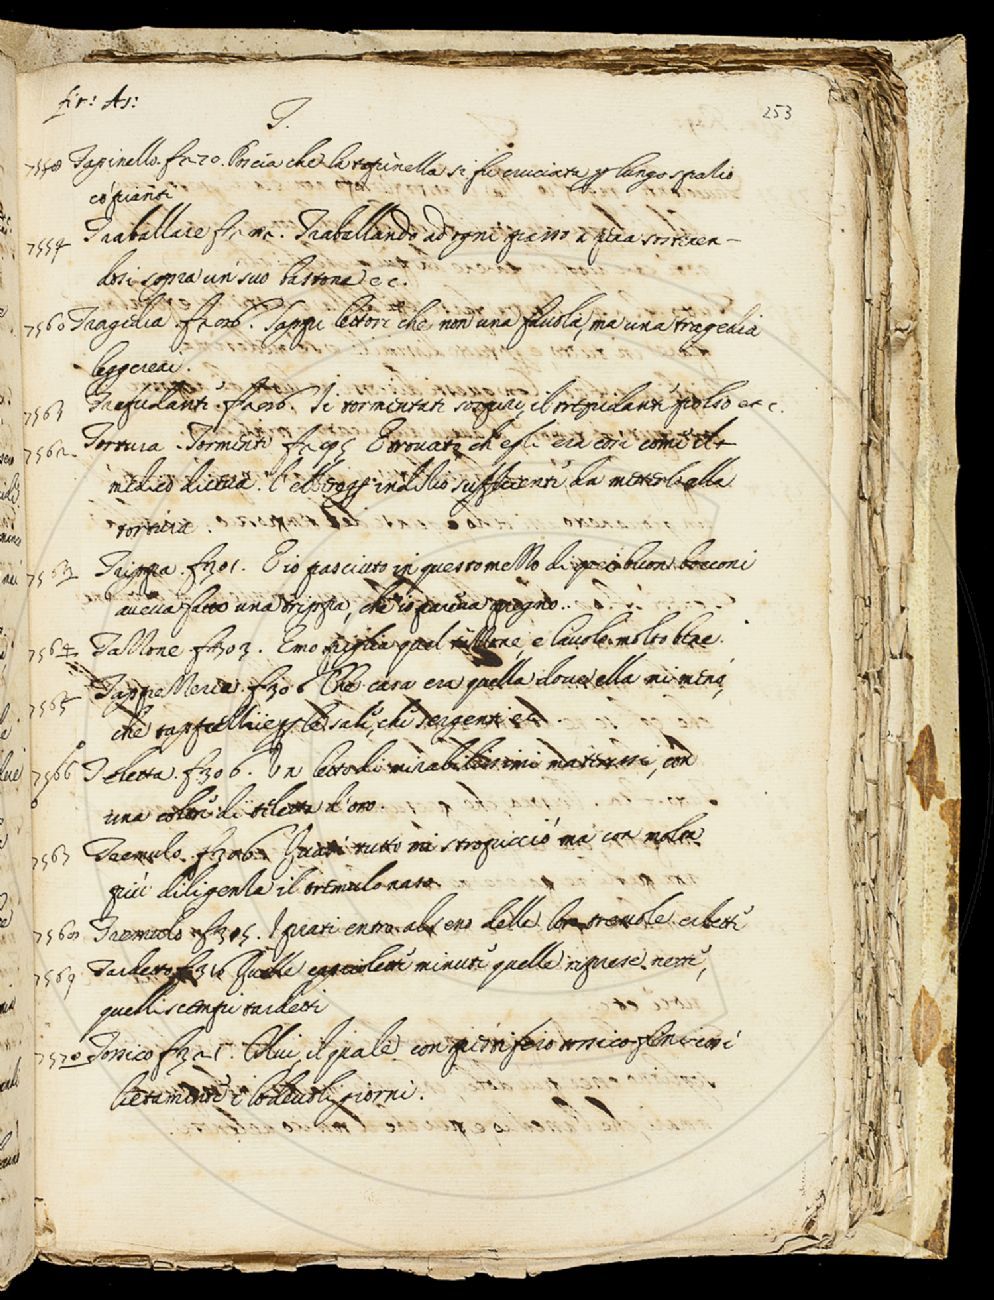 fir: As:
T.
253
7558 Tapinello. fr 20. Poscia che la tapinella si fu cruciata p lungo spatio
co pianti
7559 Traballare fr. Traballando ad ogni passo a pena sostenen-
dosi sopra un suo bastone e c.
7560 Tragedia. fr 206. Sappi lettore che non una favola, ma una tragedia
leggerai.
7561 Trepidanti. fr 206. Si tormentati sospiri, il trepidante polso et c.
7562 Tortura. Tormenti fr E trovati ch'egli era così come il
medico diceva. inditio sufficiente da metterlo alla
tortura.
7563 Trippa. fr 301. E io pasciuto in questo mezzo di buon bocconi
aveva fatto una trippa, che io pareva pregno..
7564 Tazzone fr 303. Emo piglia quel tizzone, e lavolo molto bene.
7565 Tappezzeria. fr 306 Che casa era quella dove ella mi menò,
che tapezzerie p le sale, chi sergenti et c.
7566 Teletta. fr 306. Un letto di mirabilissimi materassi, con
una coltre di teletta d'oro.
7567 Tremulo. fr 306. Quasi tutto mi stropicciò ma con molta
più diligenza il tremulo naso.
7568 Tremulo. fr 315. I prati entro al seno delle lor tremole erbette
7569 Tardetto fr 316 Quelle capriolette minute quelle riprese nette,
quelli scempi tardetti
7570 Tossico fr 325. Colui, il quale con pestifero tossico finirossi
lietamente i lodevoli giorni.